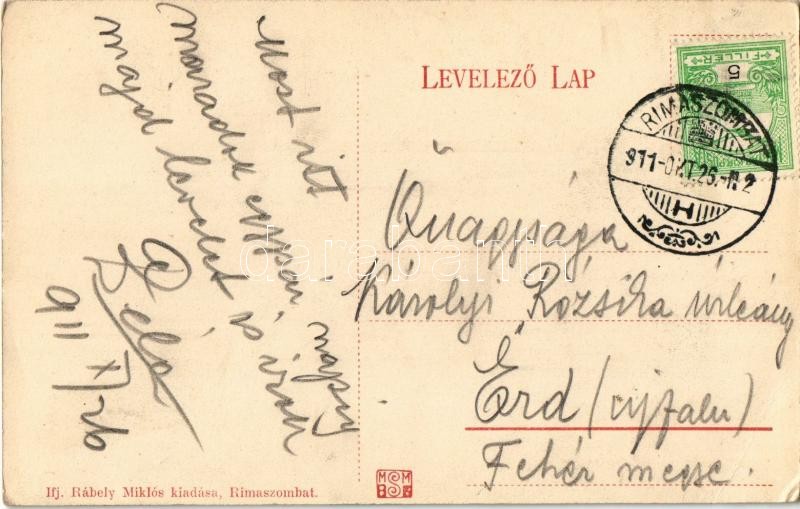 Most itt
maradok egypár napig
majd levelet is írok
Béla
911 X/26
LEVELEZŐ LAP
5
FILLER
RIMASZOMBAT
911-OKT.26.-N.2
Őnagysága
Károlyi Rózsika úrleány
Érd (újfalu)
Fehér megye.
Ifj. Rábely Miklós kiadása, Rimaszombat.
darabanth